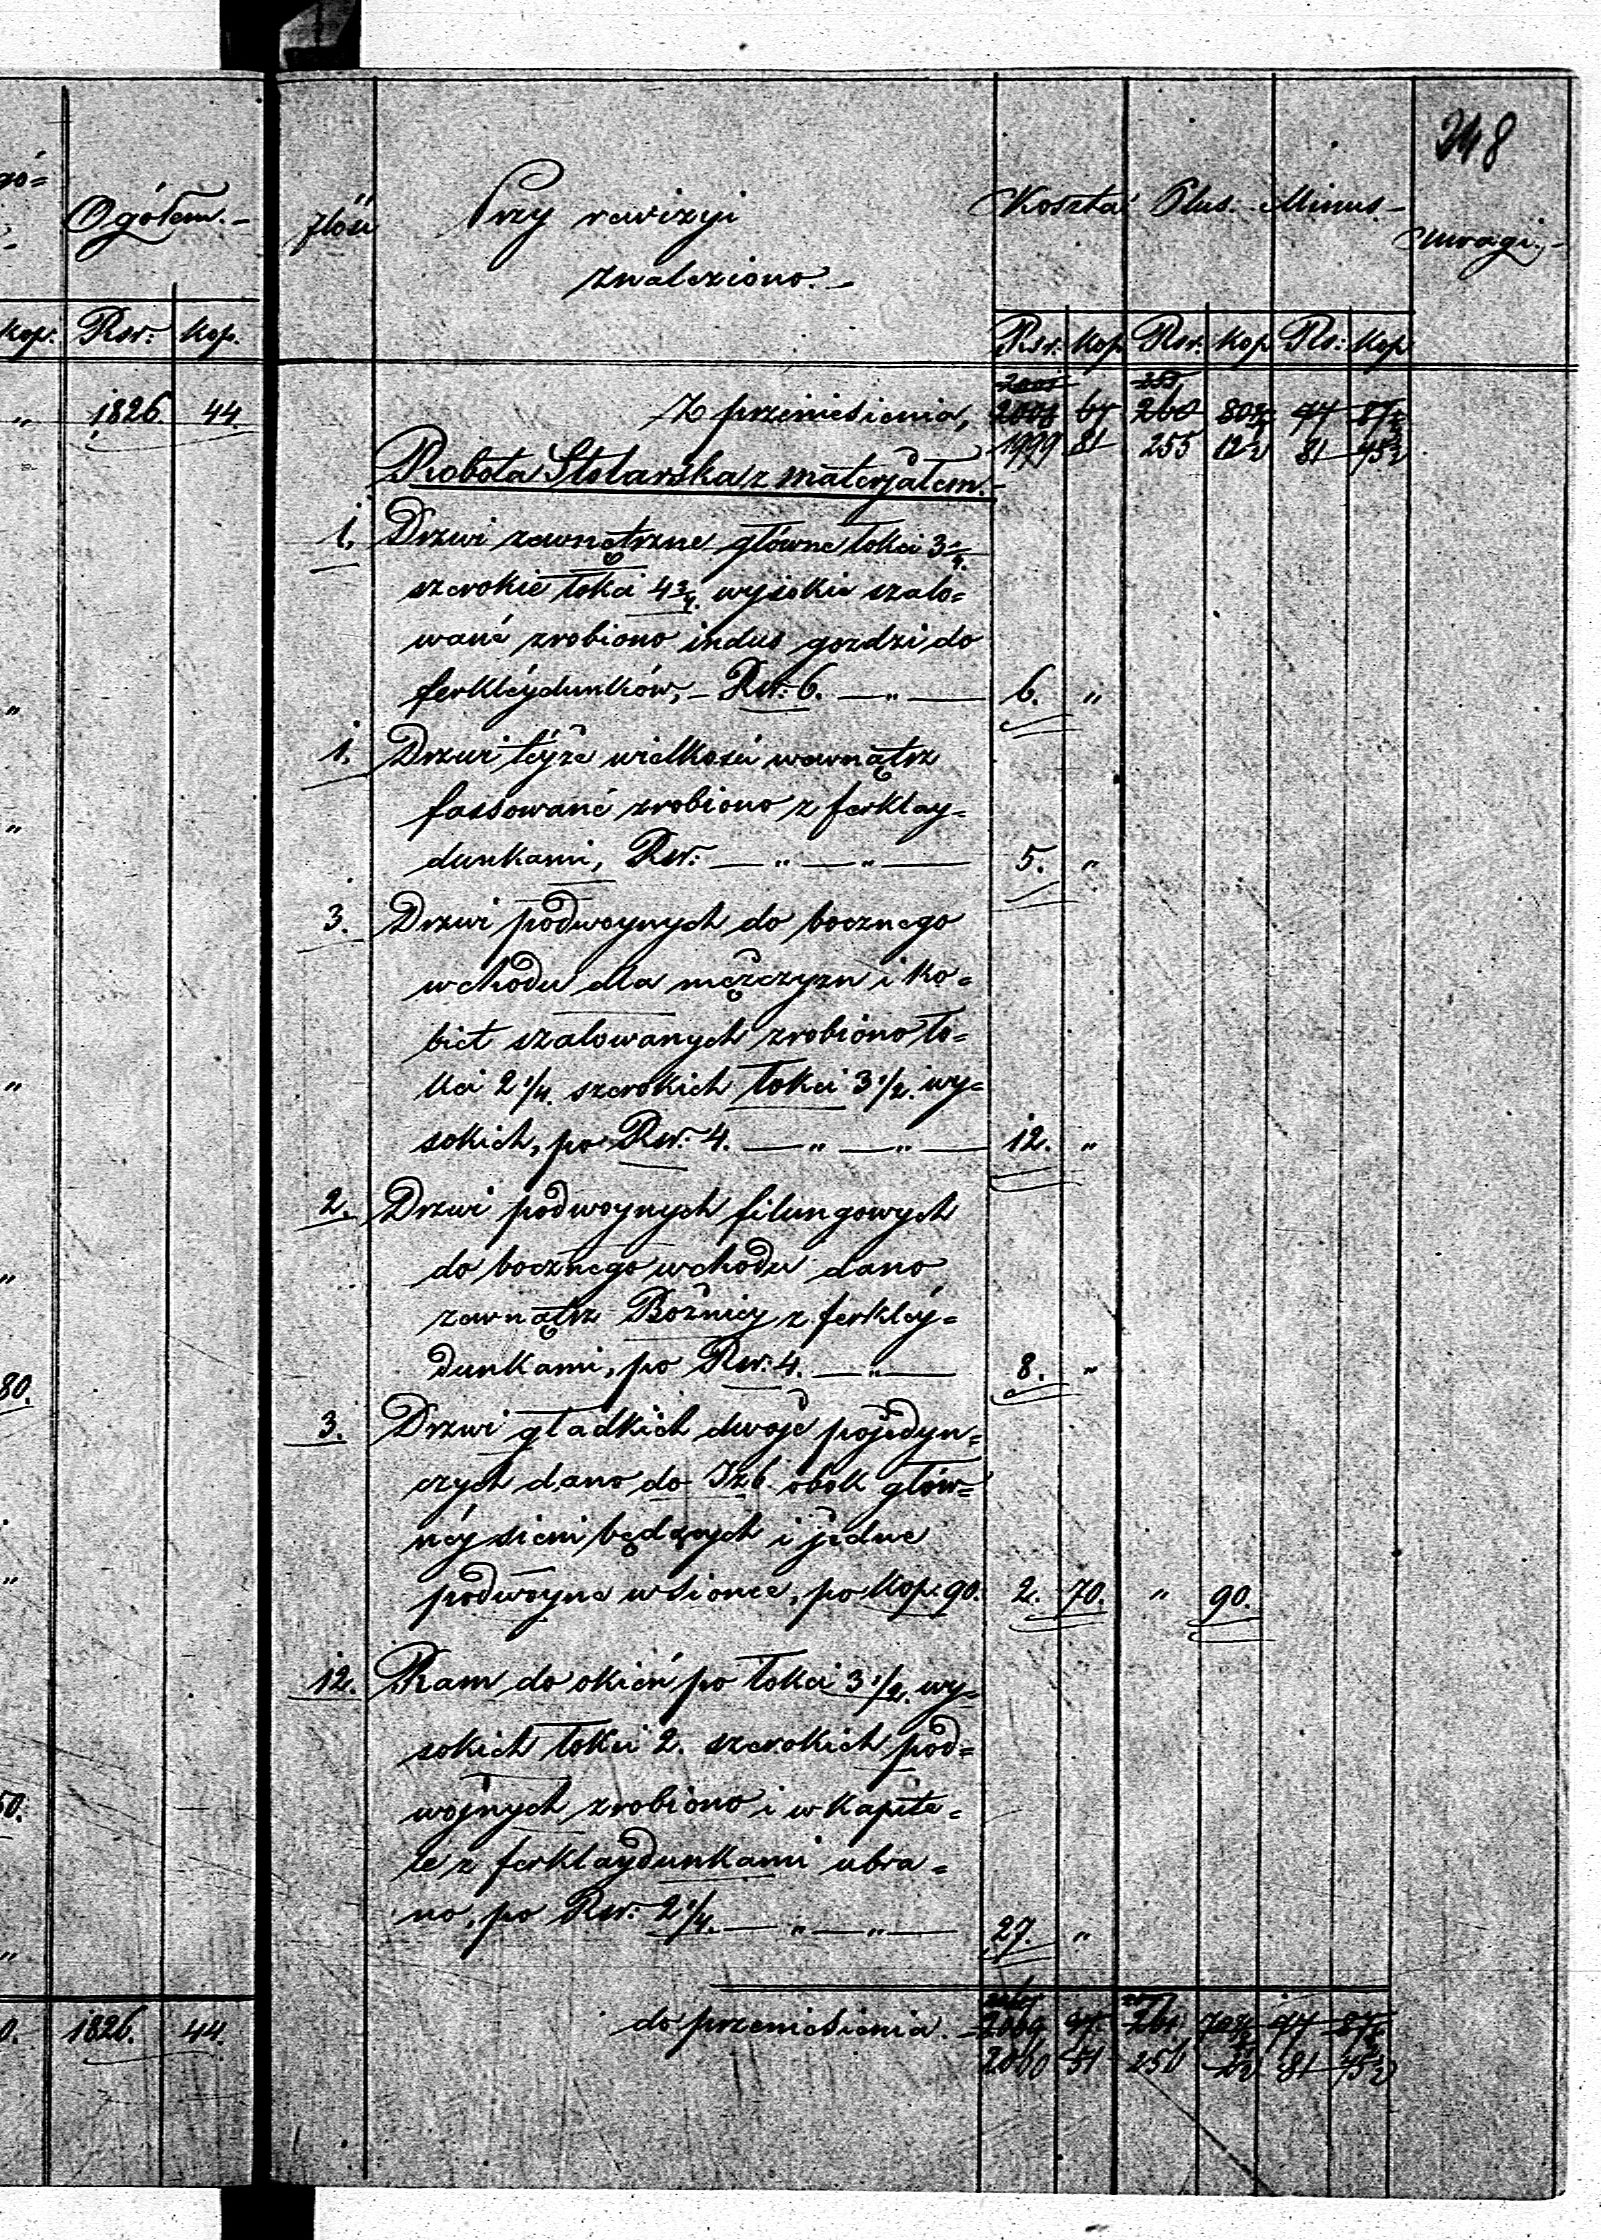 248
Ogółem.
Ilość
Przy rewizyi
znaleziono.
Koszta Plus. Minus.
Uwagi.
kop. Rsr. kop.
Rsr. kop. Rsr. kop. Rs: kop
" 1826. 44.
Z przeniesienia,
1999 81 255 12½ 81 45½
Robota Stolarska z materjałem.
1. Drzwi zewnętrzne główne łokci 3¼
szerokie łokci 4¾ wysokie szalo=
wané zrobiono indus gozdzi do
ferkléydunków, Rsr: 6. — " — 6. "
1. Drzwi téyże wielkości wewnątrz
fassowané zrobiono z ferklay=
dunkami, Rsr: — " — " — 5. "
3. Drzwi podwoynych do bocznego
wchodu dla męzczyzn i ko=
biet szalowanych zrobiono ło=
kci 2 1/4. szerokich łokci 3 1/2. wy=
sokich, po Rsr: 4. — " — " — 12. "
2. Drzwi podwoynych filungowych
do bocznego wchodu dano
zewnątrz Bożnicy z ferkléy=
dunkami, po Rsr: 4. — " — 8. "
3. Drzwi gładkich dwoje pojedyn=
czych dano do Izb obok głów=
néy sieni będących i jedne
podwoyne w sionce, po kop. 90. 2. 70. " 90.
12. Ram do okień po łokci 3 1/2. wy=
sokich łokci 2. szerokich pod=
wojnych zrobiono i w kapite=
le z ferklaydunkami ubra=
no, po Rsr: 2 1/4. — " — " — 27. "
do przeniesienia.
1826. 44.
2060 51 256 81 45½